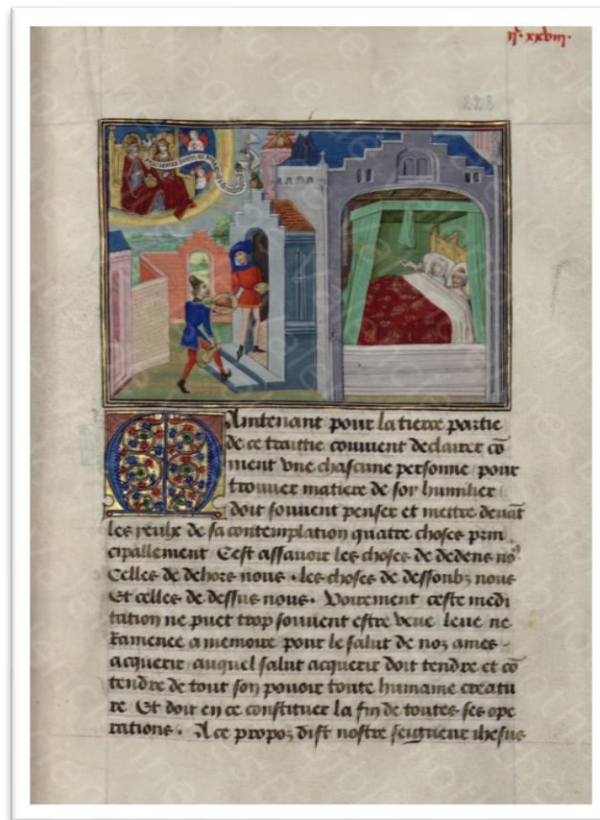 ijᶜ. xxviij.
228
Maintenant pour la tierce partie
de ce traittie convient declairer cō
ment vne chascune personne pour
trouuer matiere de soy humilier
doit souuent penser et mettre deuāt
les yeulx de sa contemplation quatre choses prin
cipallement Cest assauoir les choses de dedens noꝰ
Celles de dehors nous . les choses de dessoubz nous
Et celles de dessus nous . Voirement ceste medi
tation ne puet trop souuent estre veue leue ne
Ramenee a memoire pour le salut de noz ames
acquerir auquel salut acquerir doit tendre et cō
tendre de tout son pouoir toute humaine creatu
re Et doit en ce constituer la fin de toutes ses ope
rations . A ce propoz dist nostre seigneur ihesus